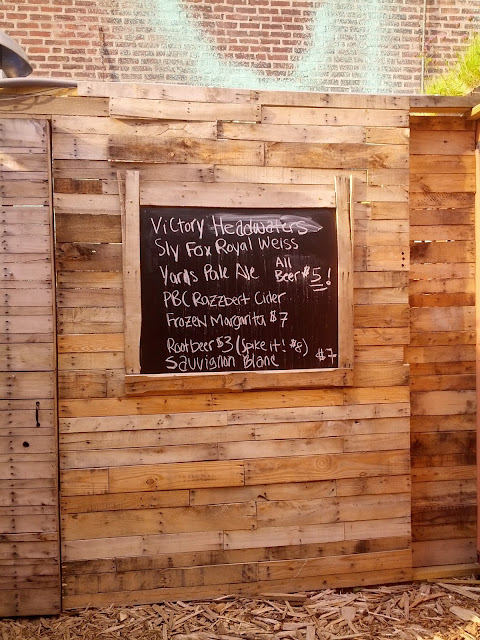 Victory Headwaters
Sly Fox Royal Weiss
Yards Pale Ale All Beer $5!
PBC Razzbert Cider
Frozen Margarita $7
Rootbeer $3 (Spike it! $8)
Sauvignon Blanc $7